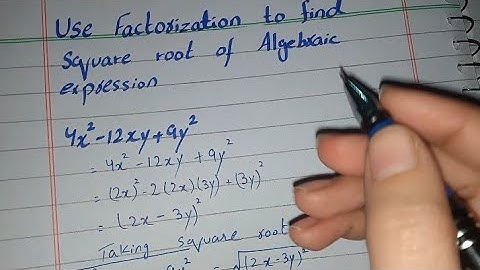 Use Factorization to find
square root of Algebraic
expression
4x² - 12xy + 9y²
= 4x² - 12xy + 9y²
= (2x)² - 2(2x)(3y) + (3y)²
= (2x - 3y)²
Taking square root
9y² = √(2x-3y)²